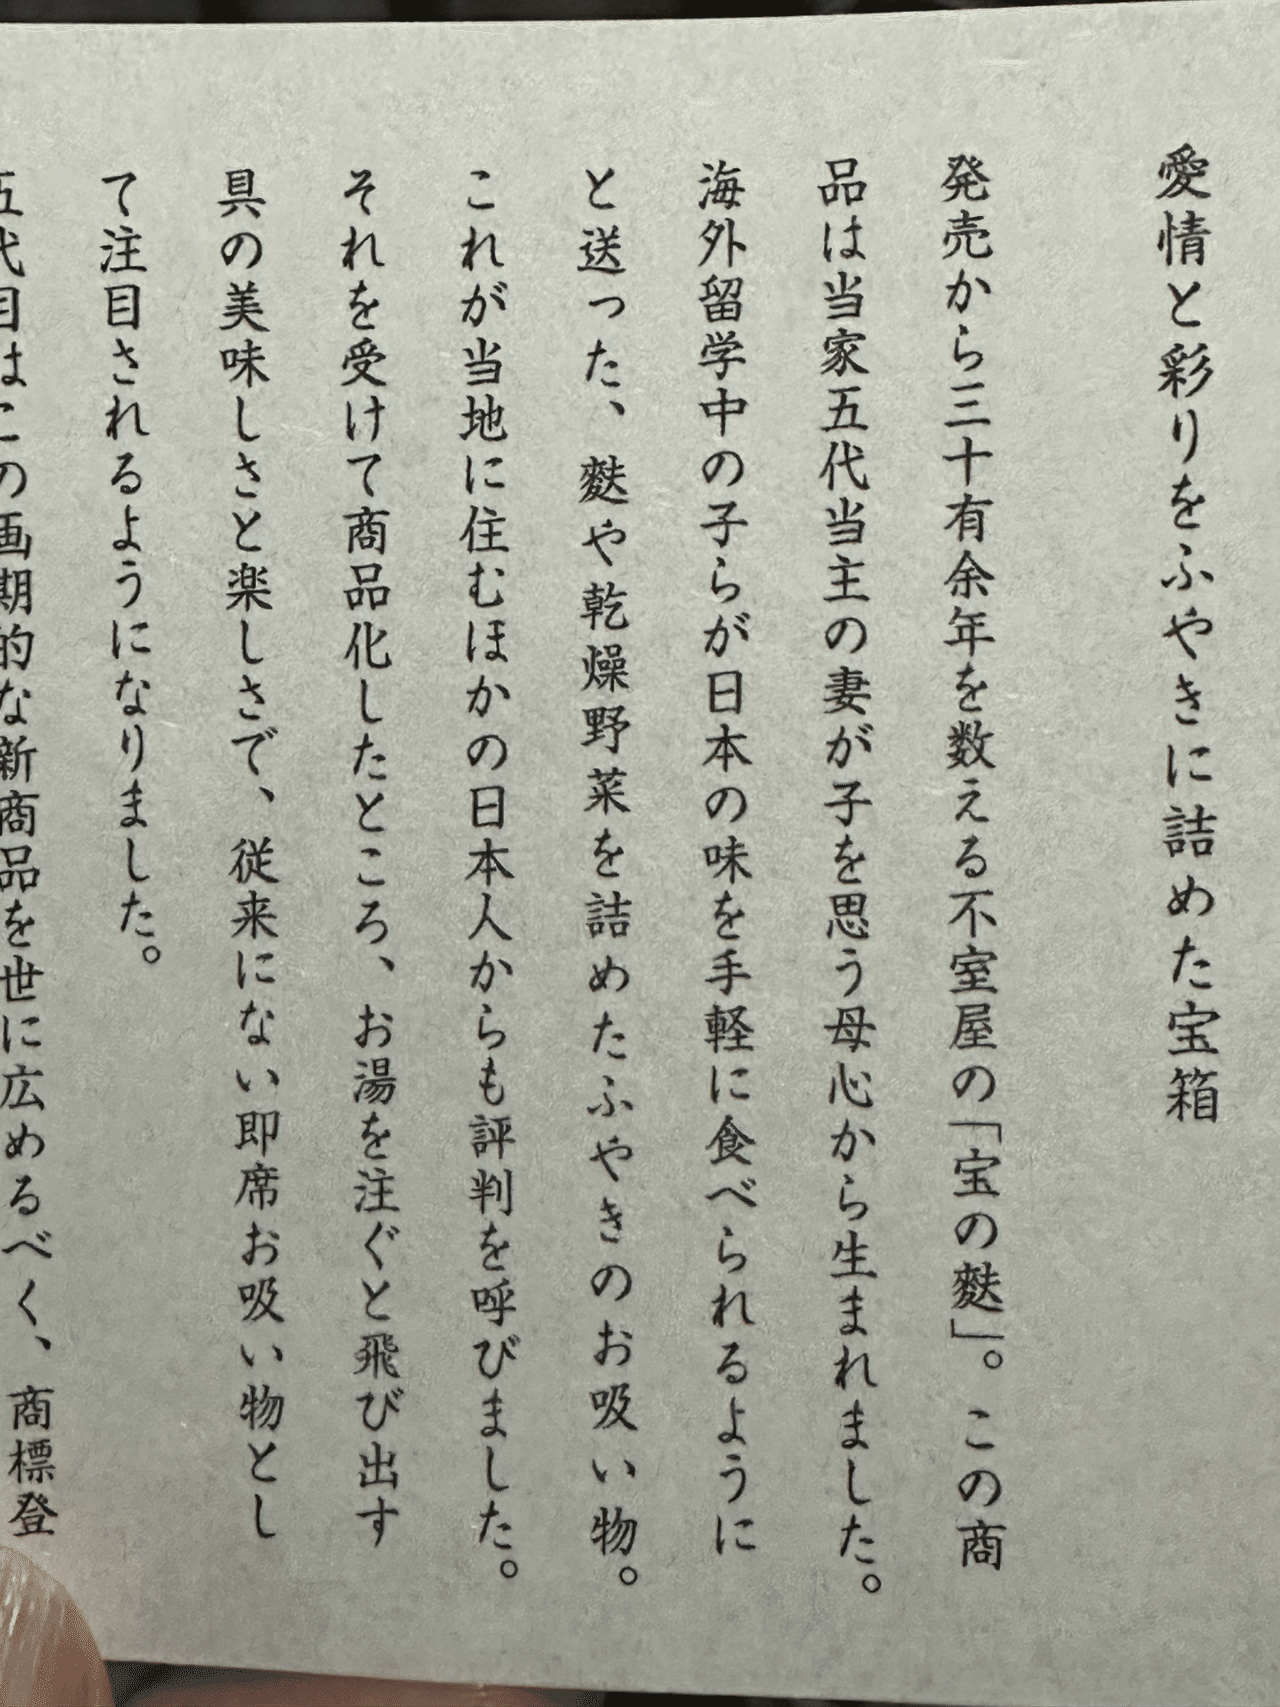 愛情と彩りをふやきに詰めた宝箱
発売から三十有余年を数える不室屋の「宝の麩」。この商
品は当家五代当主の妻が子を思う母心から生まれました。
海外留学中の子らが日本の味を手軽に食べられるように
と送った、麩や乾燥野菜を詰めたふやきのお吸い物。
これが当地に住むほかの日本人からも評判を呼びました。
それを受けて商品化したところ、お湯を注ぐと飛び出す
具の美味しさと楽しさで、従来にない即席お吸い物とし
て注目されるようになりました。
五代目はこの画期的な新商品を世に広めるべく、商標登